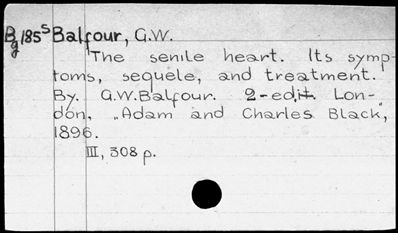 Bg 185 s Balfour, G.W.
The senile heart. Its symp-
toms, sequele, and treatment.
By. G.W.Balfour. 2-edit. Lon-
don, "Adam and Charles Black",
1896.
III, 308 p.